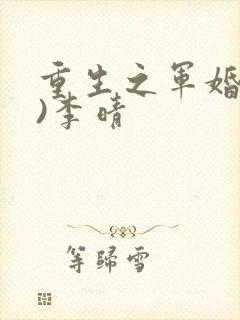 重生之军婚
)李晴
等归雪